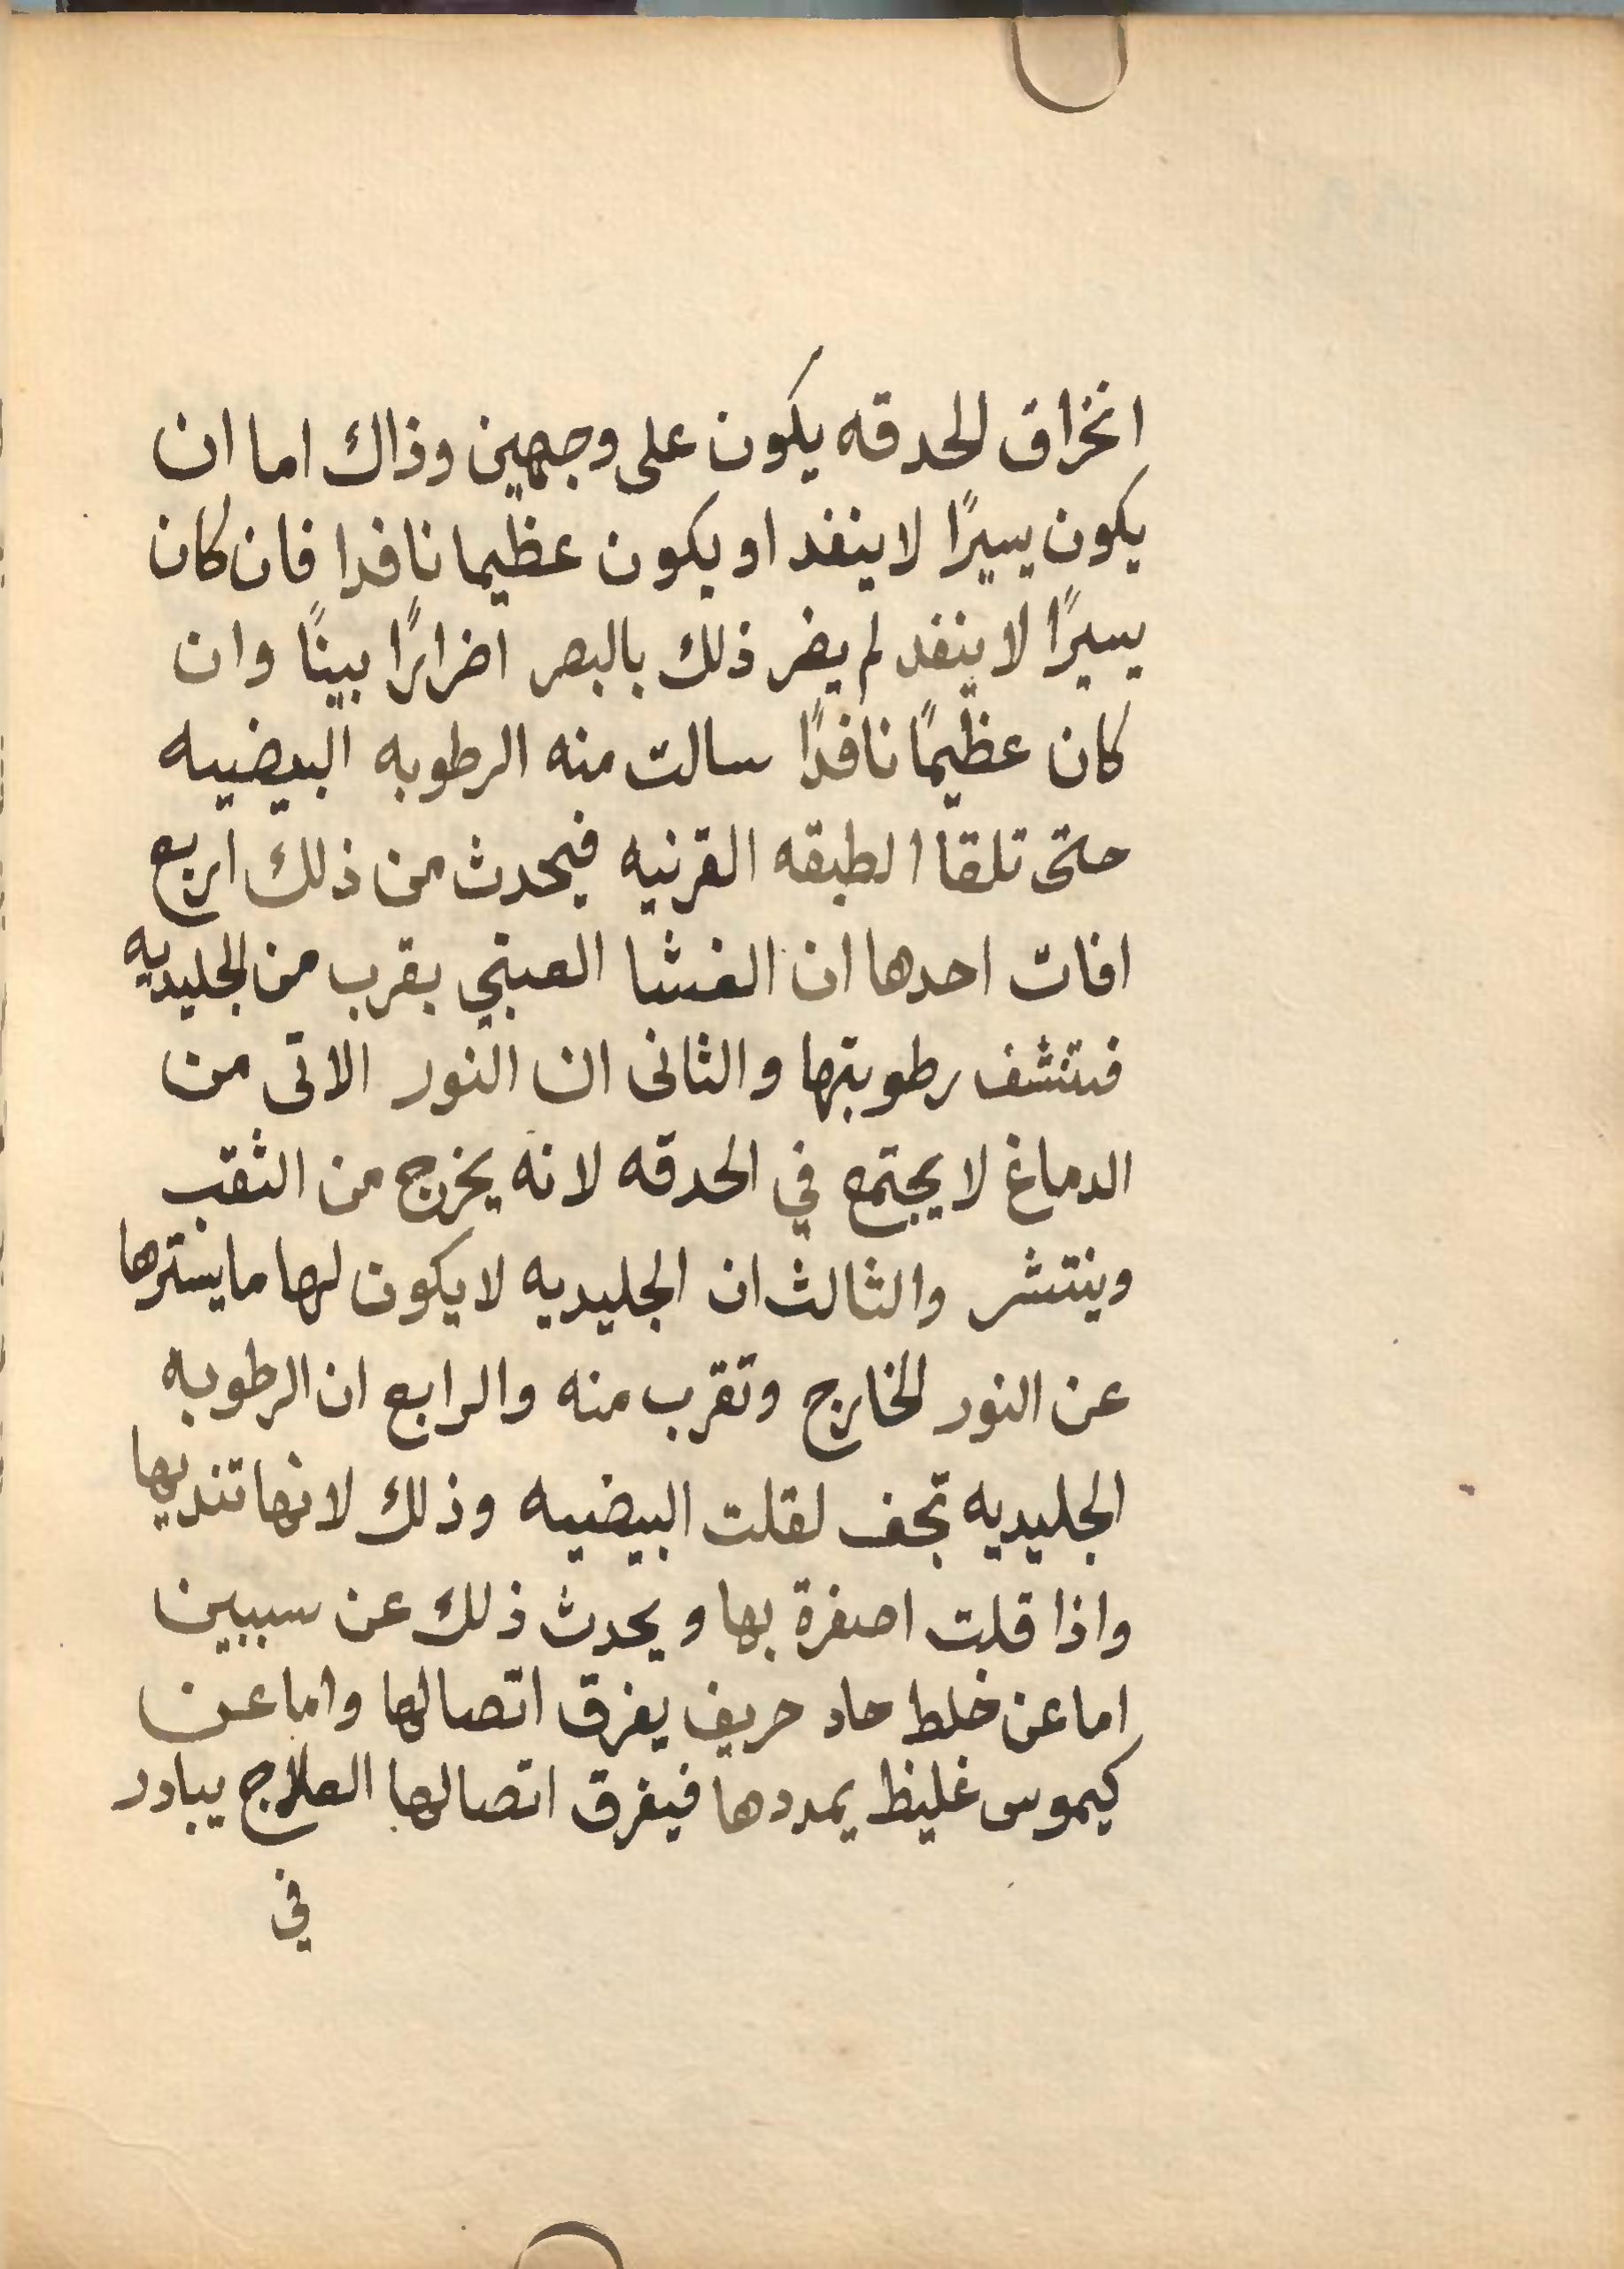 انخراق الحدقه يكون على وجهين وذاك اما ان
يكون يسيرًا لا ينفد او يكون عظيما نافدا فان كان
يسيرًا لا ينفد لم يضر ذلك بالبصر اضرارًا بينًا وان
كان عظيمًا نافدًا سالت منه الرطوبه البيضيه
حتى تلقا الطبقه القرنيه فيحدث من ذلك اربع
افات احدها ان الغشا العنبي يقرب من الجليديه
فتنشف رطوبتها والثانى ان النور الاتى من
الدماغ لا يجتمع في الحدقه لانه يخرج من الثقب
وينتشر والثالث ان الجليديه لا يكون لها ما يسترها
عن النور الخارج وتقرب منه والرابع ان الرطوبه
الجليديه تجف لقلت البيضيه وذلك لانها تنديها
واذا قلت اضرة بها ويحدث ذلك عن سببين
اما عن خلط حاد حريف يفرق اتصالها واما عن
كيموس غليظ يمددها فيفرق اتصالها العلاج يبادر
في